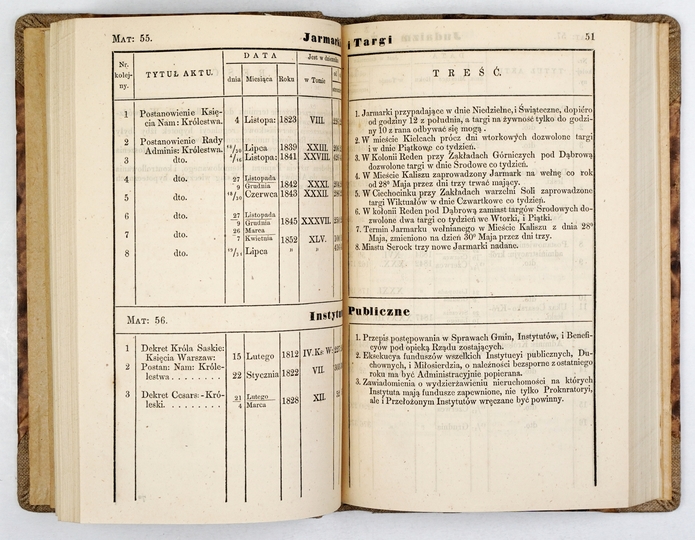 MAT: 55.
Jarmarki
Nr. kolejny.
TYTUŁ AKTU.
DATA
dnia
Miesiąca
Roku
w Tomie
1 Postanowienie Księ-
cia Nam: Królestwa. 4 Listopa: 1823 VIII.
2 Postanowienie Rady
Adminis: Królestwa. Lipca 1839 XXIII.
3 dto. Listopa: 1841 XXVIII.
4 dto. 27 Listopada
9 Grudnia 1842 XXXI.
5 dto. Czerwca 1843 XXXII.
6 dto. 27 Listopada
9 Grudnia 1845 XXXVII.
7 dto. 26 Marca
7 Kwietnia 1852 XLV.
8 dto. Lipca " "
MAT: 56.
Instytu
1 Dekret Króla Saskie:
Księcia Warszaw: 15 Lutego 1812 IV.Ks: W:
2 Postan: Nam: Króle-
lestwa . . . . . . . . 22 Stycznia 1822 VII.
3 Dekret Cesars:-Kró-
leski. . . . . . . . . 21 Lutego
4 Marca 1828 XII.
i Targi
51
TREŚĆ.
1. Jarmarki przypadające w dnie Niedzielne, i Świąteczne, dopiéro
od godziny 12 z południa, a targi na żywność tylko do godzi-
ny 10 z rana odbywać się mogą .
2. W mieście Kielcach prócz dni wtorkowych dozwolone targi
i w dnie Piątkowe co tydzień.
3. W Kolonii Reden przy Zakładach Górniczych pod Dąbrową
dozwolone targi w dnie Środowe co tydzień.
4. W Mieście Kaliszu zaprowadzony Jarmark na wełnę co rok
od 28° Maja przez dni trzy trwać mający.
5. W Ciechocinku przy Zakładach warzelni Soli zaprowadzone
targi Wiktuałów w dnie Czwartkowe co tydzień.
6. W kolonii Reden pod Dąbrową zamiast targów Środowych do-
zwolone dwa targi co tydzień we Wtorki, i Piątki.
7. Termin Jarmarku wełnianego w Mieście Kaliszu z dnia 28°
Maja, zmieniono na dzień 30° Maja przez dni trzy.
8. Miastu Serock trzy nowe Jarmarki nadane.
Publiczne
1. Przepis postępowania w Sprawach Gmin, Instytutów, i Benefi-
cyów pod opieką Rządu zostających.
2. Eksekucya funduszów wszelkich Instytucyi publicznych, Du-
chownych, i Miłosierdzia, o należności bezsporne z ostatniego
roku ma być Administracyjnie popierana.
3. Zawiadomienia o wydzierżawieniu nieruchomości na których
Instytuta mają fundusze zapewnione, nie tylko Prokuratoryi,
ale i Przełożonym Instytutów wręczane być powinny.